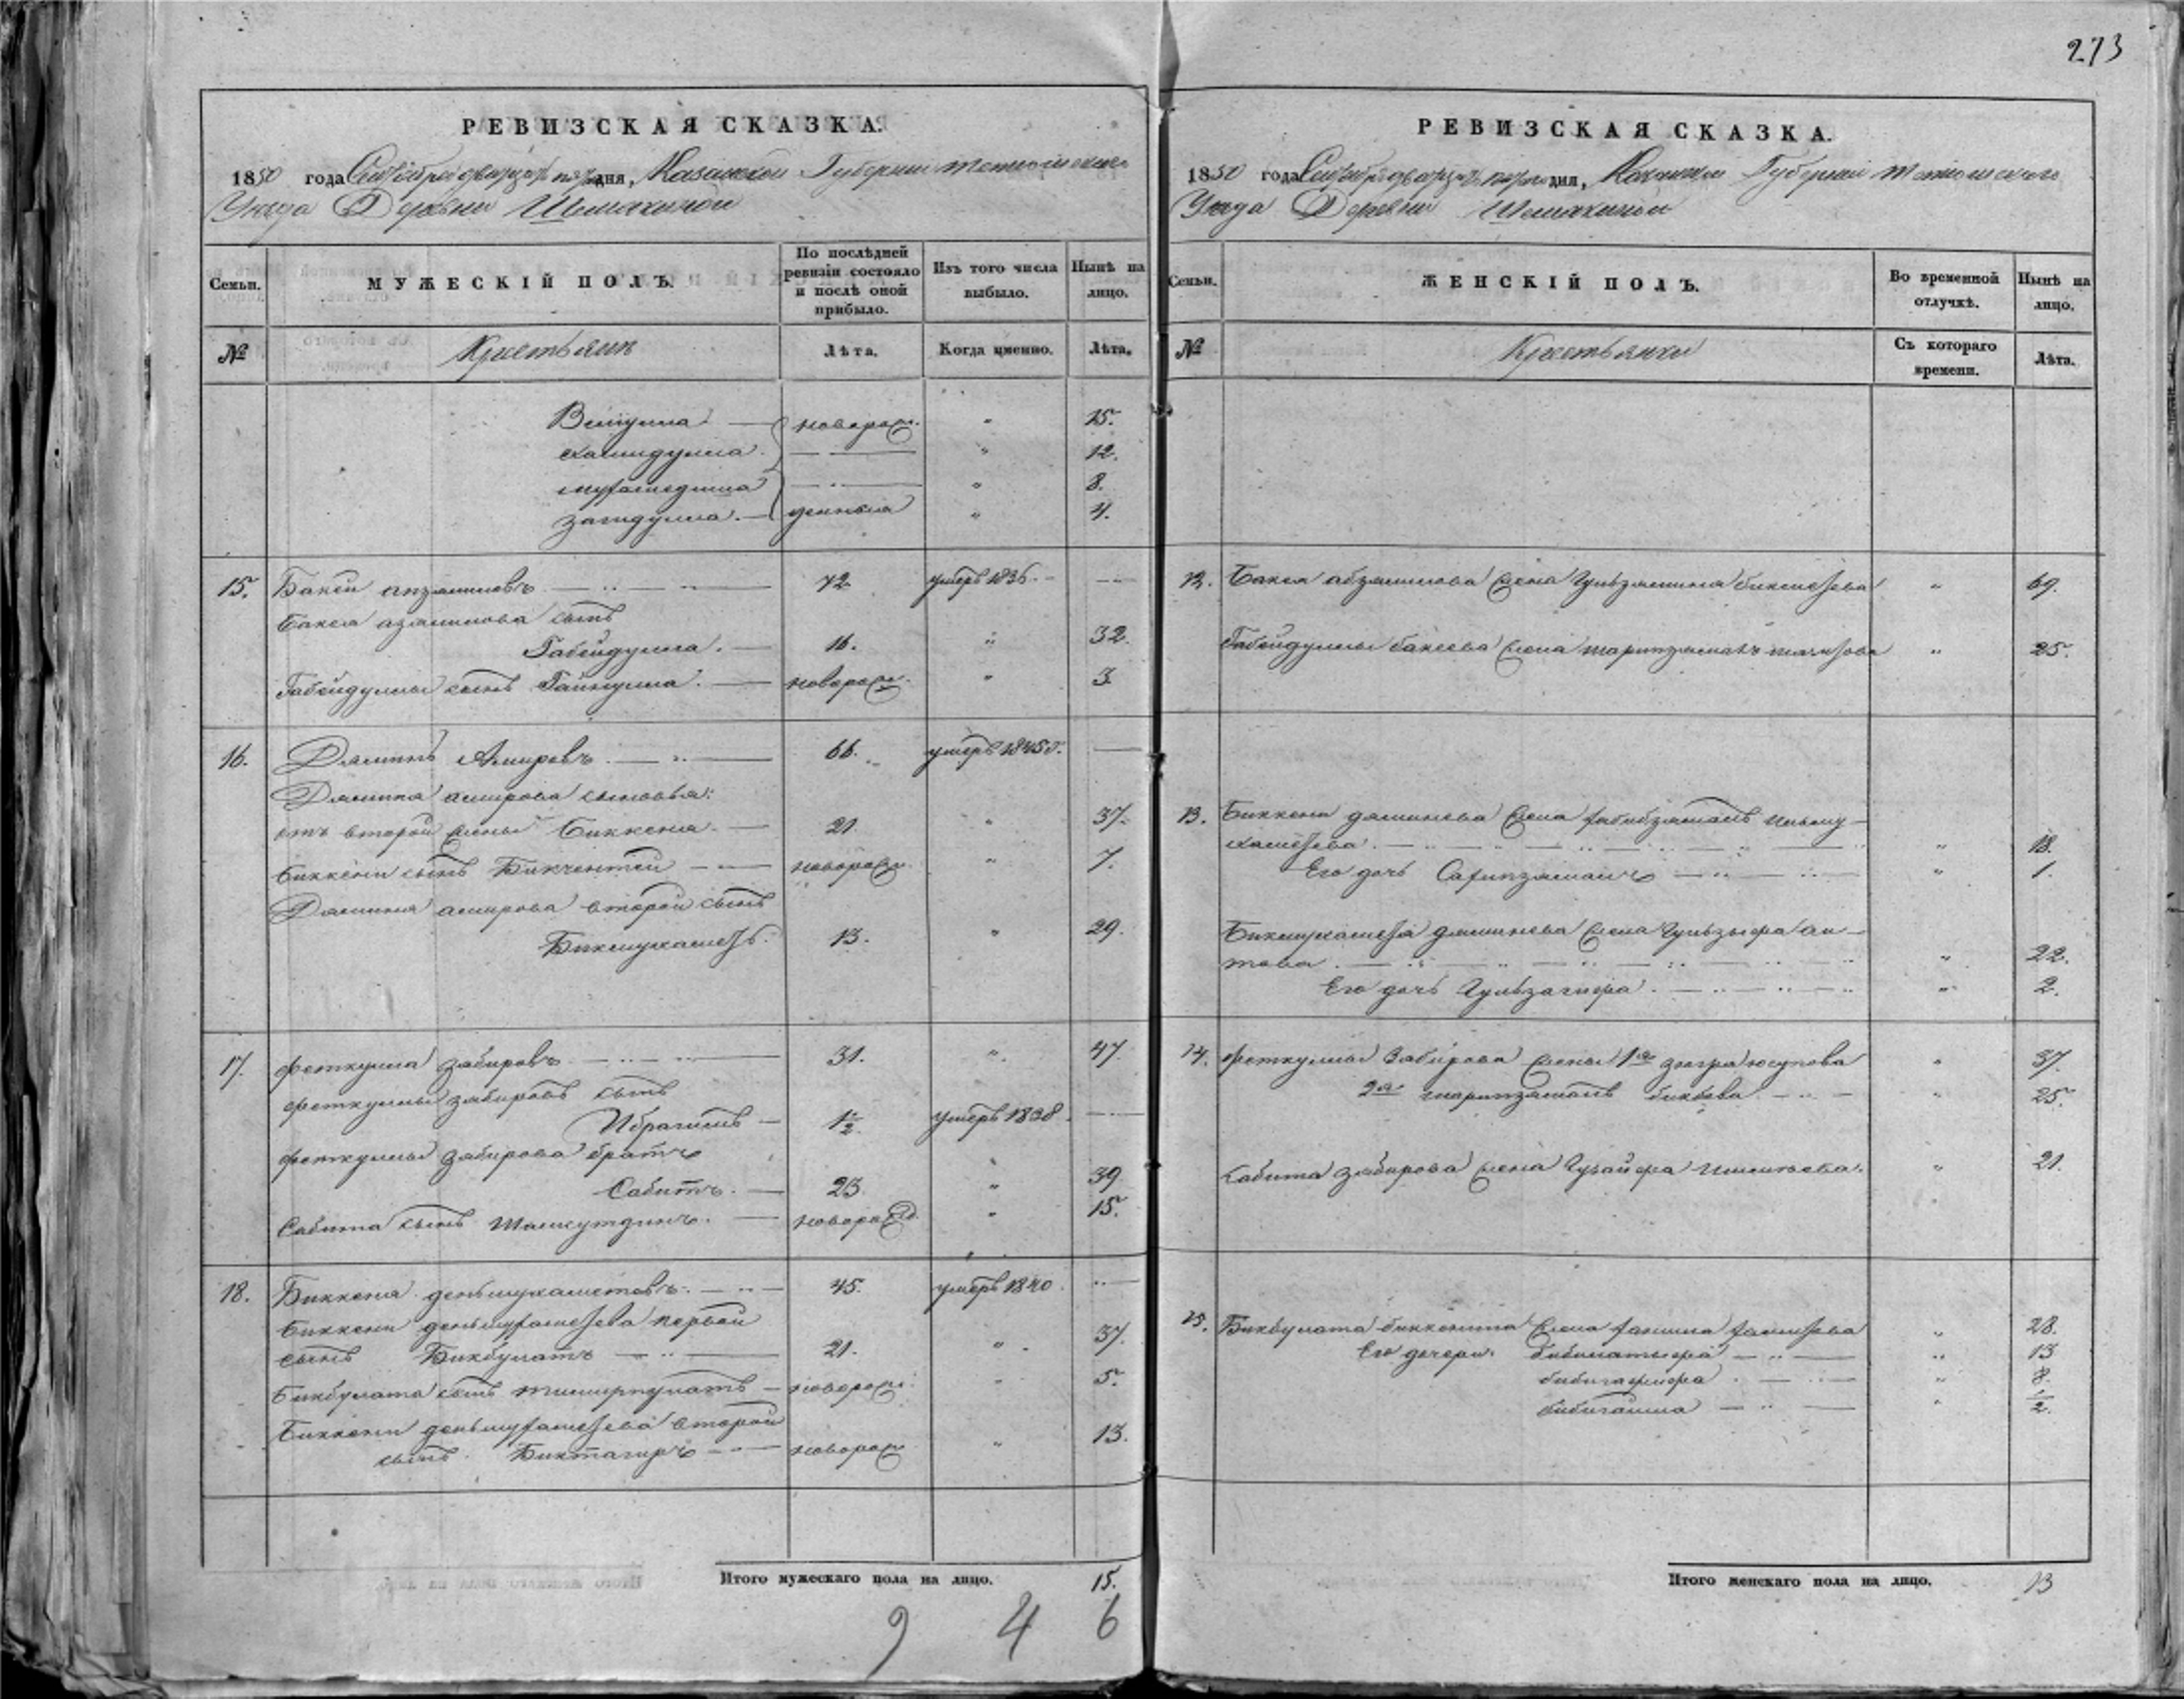 273
РЕВИЗСКАЯ СКАЗКА.
1850 года Сентября двадцать дня, Казанской Губернии Тетюшскаго
Уезда Деревни Шемякиной
Семьи. МУЖЕСКІЙ ПОЛЪ. По послѣдней ревизіи состояло и послѣ оной прибыло. Изъ того числа выбыло. Нынѣ на лицо.
№ Крестьяне Лѣта. Когда именно. Лѣта.
Велиулла — новорож. " 15.
Хамидулла " 12.
мухаметша " 8.
загидулла. — денныя " 4.
15. Бакей апзямиловъ 72 умеръ 1836.
Бакея сынъ
Габейдулла. — 16. " 32.
Габейдуллы сынъ Гайнулла. — новорож. " 3
16. Даминъ Амировъ. 66. умеръ 1845
Дамина амирова сыновья:
отъ второй жены Биккеня. — 21. " 37.
Биккени сынъ Бикчентей новорож. " 7.
Дамина амирова второй сынъ
Бикмухаметъ. 13. " 29.
17. феткулла забировъ 31. " 47
феткуллы забирова сынъ
Ибрагимъ — 1½ умеръ 1838.
феткуллы забирова братъ
Сабитъ. — 23 " 39
Сабита сынъ Шамсутдинъ. — новорожд. " 15.
18. Биккеня деньмухаметовъ. 45. умеръ 1840.
Биккени деньмухаметева первой
сынъ Бикбулатъ 21. " 37.
Бикбулата сынъ тимирпулатъ — новорож. " 5.
Биккени деньмухаметева второй
сынъ. Биктагиръ новорож " 13.
Итого мужескаго пола на лицо. 15.
9 4 6
РЕВИЗСКАЯ СКАЗКА.
1850 года Сентября двадцать дня, Казанской Губерніи Тетюшскаго
Уезда Деревни Шемякиной
Семьи. ЖЕНСКІЙ ПОЛЪ. Во временной отлучкѣ. Нынѣ на лицо.
№ Крестьянки Съ котораго времени. Лѣта.
12. Бакея абзямилова жена Гульзямиля бикметева " 69.
Габейдуллы бакеева жена " 25.
13. Биккени даминева жена хабибзямалъ ишму-
хаметева. " 18.
Его дочь Сафипзямалъ " 1.
Бикмухаметя даминева жена Гульзыфа аи-
това. " 22.
Его дочь Гульзагифа. " 2.
14. феткуллы Забирова жены 1я зюгра юсупова " 37.
2я шарипзямалъ бикбова " 25.
Сабита забирова жена Гузайфа " 21.
15. Бикбулата биккенина жена " 28.
Его дочери. " 13
бибигафифа " 8.
" ½.
Итого женскаго пола на лицо. 13